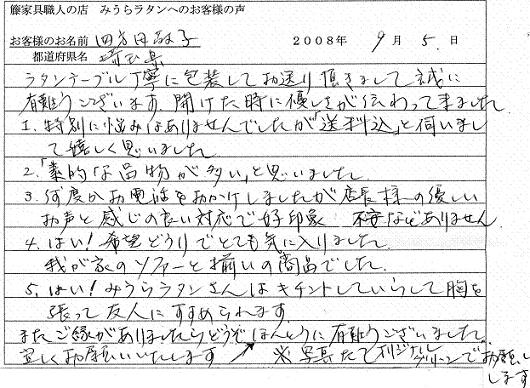 籐家具職人の店 みうらラタンへのお客様の声
お客様のお名前 四方田敏子 2008年 9月 5日
都道府県名 埼玉県
ラタンテーブル丁寧に包装してお送り頂きまして誠に
有難うございます。開けた時に優しさが伝わって来ました
1. 特別に悩みはありませんでしたが「送料込」と伺いまし
て嬉しく思いました
2.「素的な品物が多い」と思いました
3. 何度かお電話をおかけしましたが店長様の優しい
お声と感じの良い対応で好印象 不安などありません
4. はい!希望どうりでとても気に入りました。
我が家のソファーと揃いの商品でした。
5. はい!みうらラタンさんはキチントしていらして胸を
張って友人にすすめられます
またご縁がありましたらどうぞ ほんとうに有難うございました。
宜しくお願いいたします ※写真たてオリジナル
グリーンでお願いし
します